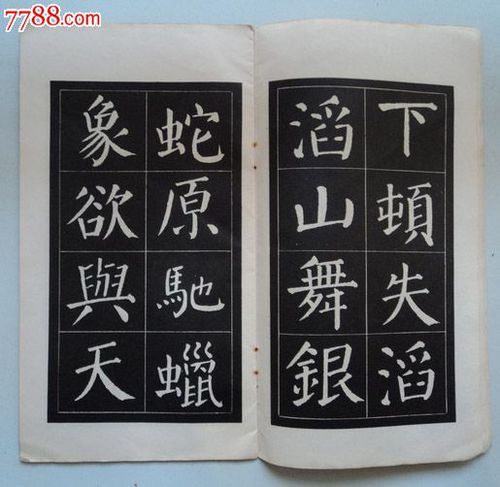 7788.com
下頓失滔
滔山舞銀
蛇原馳蠟
象欲與天